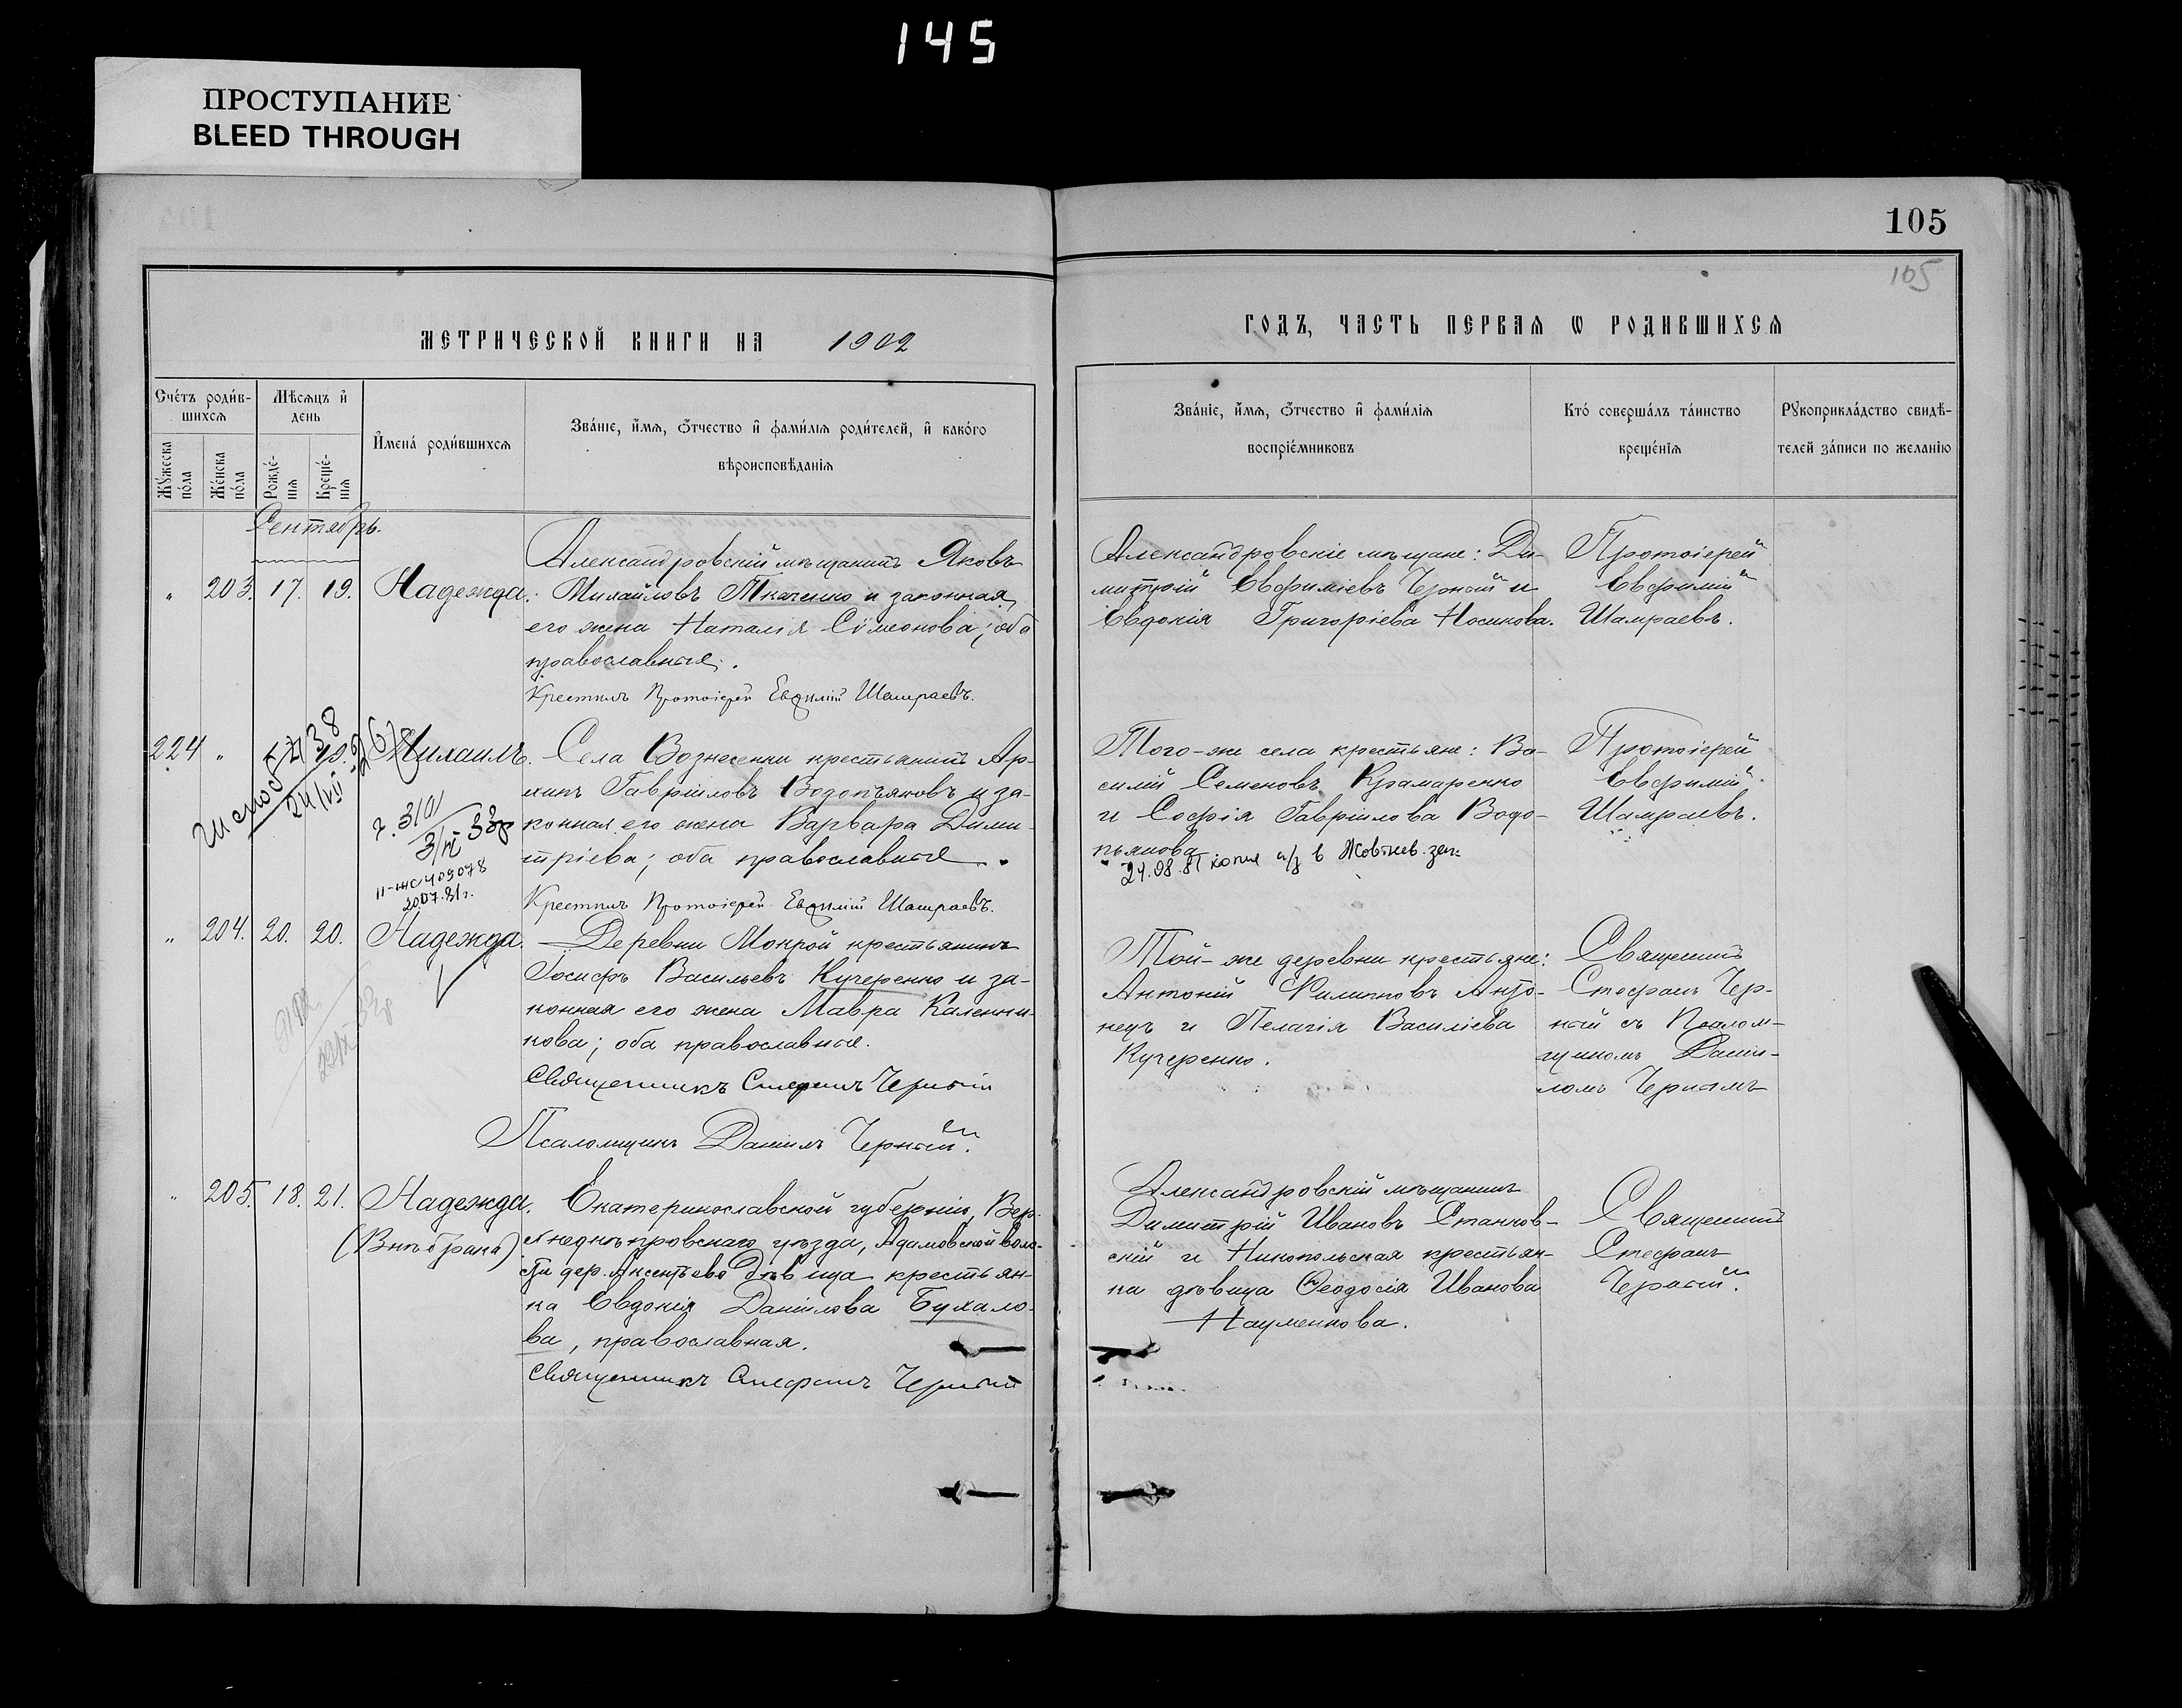 145
ПРОСТУПАНИЕ
BLEED THROUGH
105
105
МЕТРИЧЕСКОЙ КНИГИ НА 1902
ГОДЪ, ЧАСТЬ ПЕРВАЯ Ѡ РОДИВШИХСЯ
Счетъ родив-
шихся
Мѣсяцъ и
день
Имена родившихся
Званіе, имя, отчество и фамилія родителей, и какого
вѣроисповѣданія
Мужеска
пола
Женска
пола
Рожде-
нія
Креще-
нія
Званіе, имя, отчество и фамилія
воспріемниковъ
Кто совершалъ таинство
крещенія
Рукоприкладство свидѣ-
телей записи по желанію
Сентябрь.
„ 203. 17. 19. Надежда.
Александровскій мѣщанинъ Яковъ
Михайловъ Ткаченко и законная
его жена Наталія Сімеонова; оба
православные.
Крестилъ Протоіерей Евфимій Шамраевъ.
Александровскіе мѣщане: Ди-
митрій Евфиміевъ Черный и
Евдокія Григоріева Носикова.
Протоіерей
Евфимій
Шамраевъ.
224 „ 19. Михаилъ.
24/VII
г. 3101
3/IX 33г
II-жс 409078
20.07.81г.
Села Вознесенки крестьянинъ Ар-
хипъ Гавріиловъ Водопьяновъ и за-
конная его жена Варвара Дими-
тріева; оба православные.
Крестилъ Протоіерей Евфимій Шамраевъ.
Того-же села крестьяне: Ва-
силій Семеновъ Крамаренко
и Софія Гавріилова Водо-
пьянова
24.08.81 копия а/з в Жовтнев. заг.
Протоіерей
Евфимій
Шамраевъ.
„ 204. 20. 20. Надежда.
Деревни Мокрой крестьянинъ
Іосифъ Васильевъ Кучеренко и за-
конная его жена Мавра Калинни-
кова; оба православные.
Священникъ Стефанъ Черный
Псаломщикъ Даніилъ Черный.
Той-же деревни крестьяне:
Антоній Филипповъ Анто-
нецъ и Пелагія Василіева
Кучеренко.
Священникъ
Стефанъ Чер-
ный съ Псалом-
щикомъ Даніи-
ломъ Чернымъ
„ 205. 18. 21. Надежда.
(Внѣ брака)
Екатеринославской губерніи, Вер-
хнеднѣпровскаго уѣзда, Адамовской воло-
сти дер. Аксентьево дѣвица крестьян-
ка Евдокія Даніилова Бухало-
ва, православная.
Священникъ Стефанъ Черный
Александровскій мѣщанинъ
Димитрій Ивановъ Станков-
скій и Никопольская крестьян-
ка дѣвица Ѳеодосія Иванова
Науменкова.
Священникъ
Стефанъ
Черный.